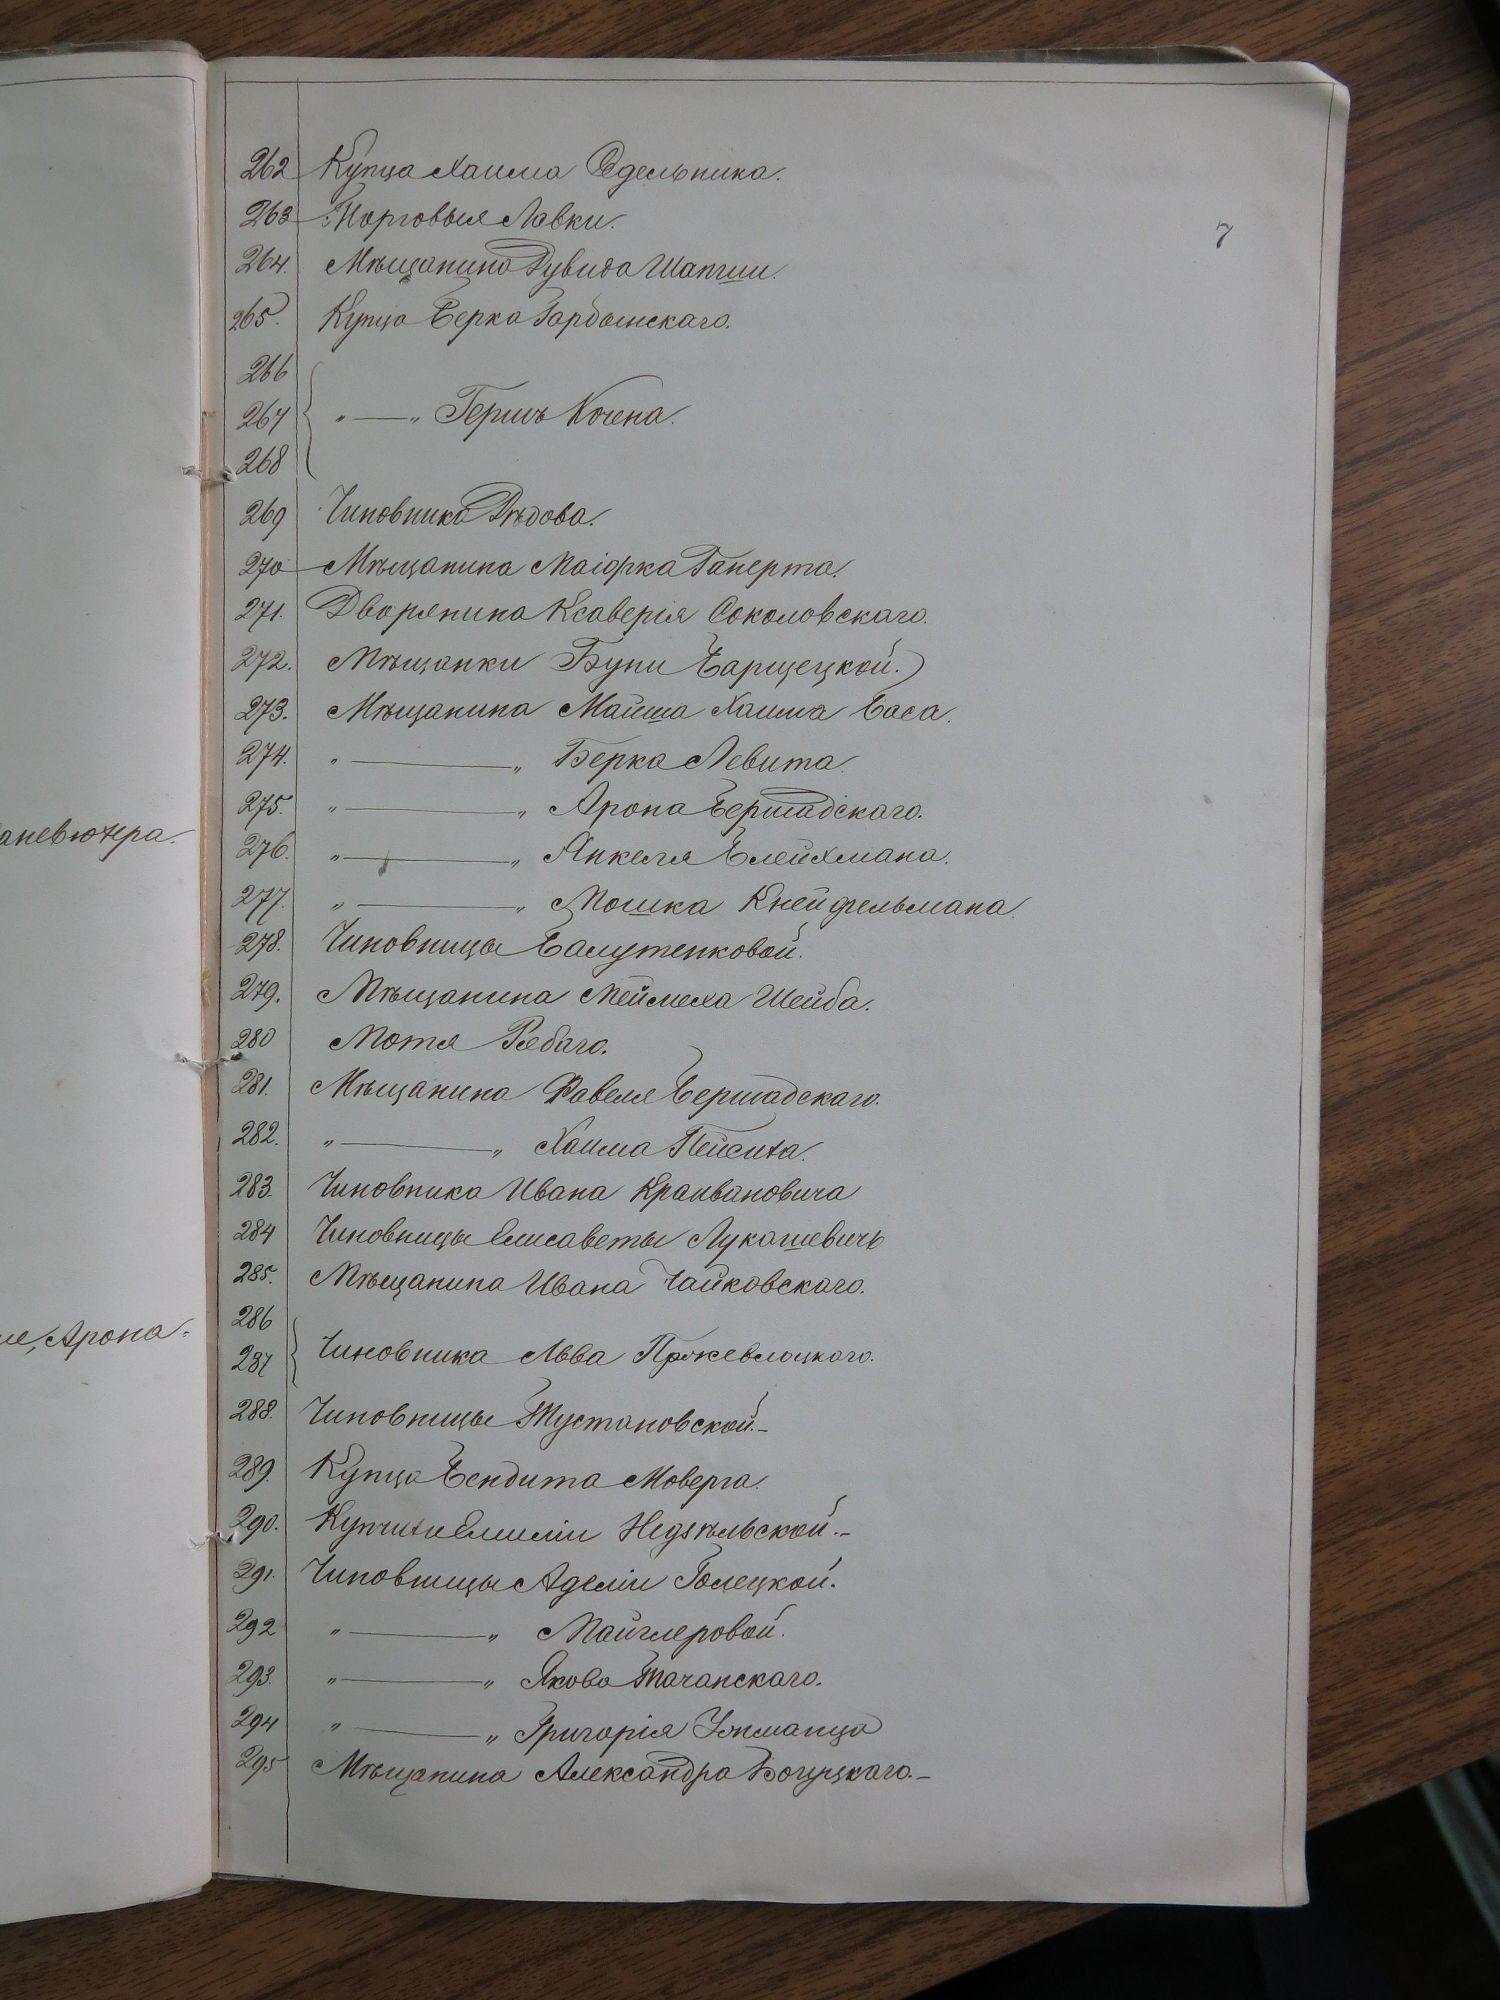 7
262 Купца Хаима Едельника.
263 Торговыя Лавки.
264. Мѣщанина Дувида Шапши.
265. Купца Берка Гарбинскаго.
266
267 „ — „ Гершъ Когена.
268
269 Чиновника Дѣдова.
270 Мѣщанина Маіорка Гаперта.
271. Дворянина Ксаверія Соколовскаго.
272. Мѣщанки Буни Барщецкой.
273. Мѣщанина Майша Хаима Баса.
274. „ — „ Берка Левита.
275. „ — „ Арона Бершадскаго.
276. „ — „ Янкеля Блейхмана.
277. „ — „ Мошка Кнейфельмана.
278. Чиновницы Балутенковой.
279. Мѣщанина Меймеха Шейба.
280 Мотя Рябаго.
281. Мѣщанина Фавеля Бершадскаго.
282. „ — „ Хаима Пейсиха.
283. Чиновника Ивана Краивановича
284 Чиновницы Елисаветы Лукашевичъ
285. Мѣщанина Ивана Чайковскаго.
286
287 Чиновника Льва
288. Чиновницы Тустановской.-
289. Купца Бендита Моверга.
290. Купчихи Емиліи Недзѣльской.-
291. Чиновницы Аделіи Голецкой.
292 „ — „ Майглеровой.
293. „ — „ Якова Тачанскаго.
294 „ — „ Григорія
295 Мѣщанина Александра Богуцкаго.-
аневюхера.
Арона-